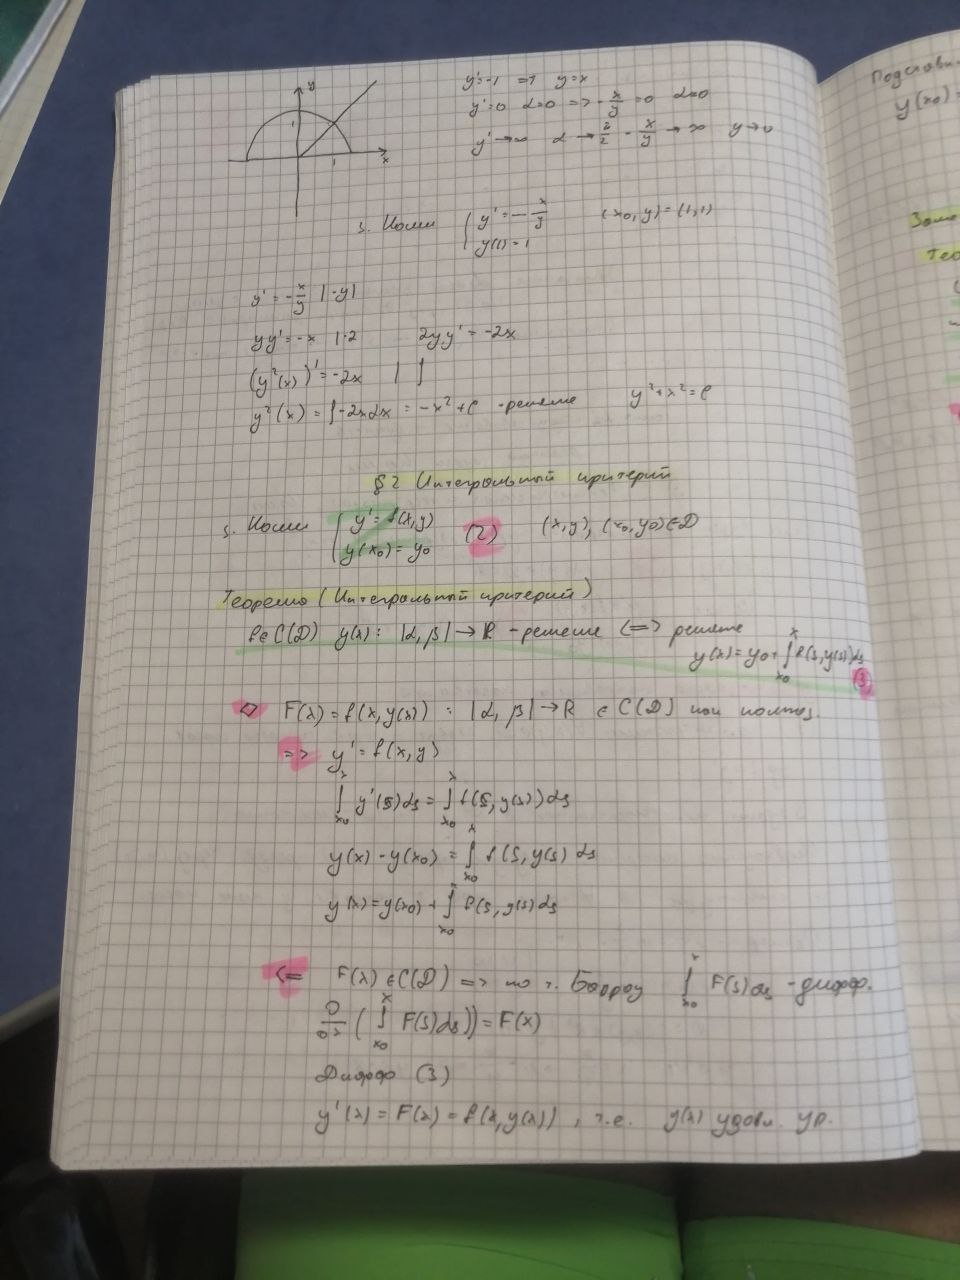 y
1
1
x
y'=-1 => y=x
y'=0 α=0 => -x/y=0 α=0
y'→∞ α→ π/2 -x/y→∞ y→0
з. Коши { y'=-x/y (x₀,y)=(1,1)
y(1)=1
y'=-x/y |·y|
yy'=-x |·2 2yy'=-2x
(y²(x))'=-2x | ∫
y²(x)=∫-2xdx=-x²+C -решение y²+x²=C
§2 Интегральный критерий
з. Коши { y'=f(x,y) (2) (x,y), (x₀,y₀)∈D
y(x₀)=y₀
Теорема (Интегральный критерий)
f∈C(D) y(x): |α,β|→R -решение <=> решение
y(x)=y₀+∫ₓ₀ˣ f(s,y(s))ds
(3)
F(x)=f(x,y(x)) : |α,β|→R ∈C(D) как
=> y'=f(x,y)
∫ₓ₀ˣ y'(s)ds=∫ₓ₀ˣ f(s,y(s))ds
y(x)-y(x₀)=∫ₓ₀ˣ f(s,y(s) ds
y(x)=y(x₀)+∫ₓ₀ˣ f(s,y(s)ds
<= F(x)∈C(D) => по т. Барроу ∫ₓ₀ˣ F(s)ds-дифф.
(∫ₓ₀ˣ F(s)ds))=F(x)
Дифф (3)
y'(x)=F(x)=f(x,y(x)) , т.е. y(x) удовл. ур.
Подстави
y(x₀)=
Заме
Тео